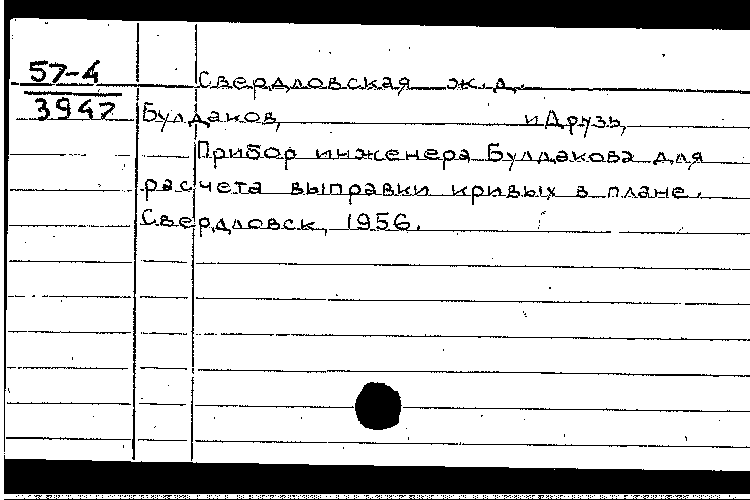 57-4
3947
Свердловская ж.д.
Булдаков, и Друзь,
Прибор инженера Булдакова для
расчета выправки кривых в плане.
Свердловск, 1956.